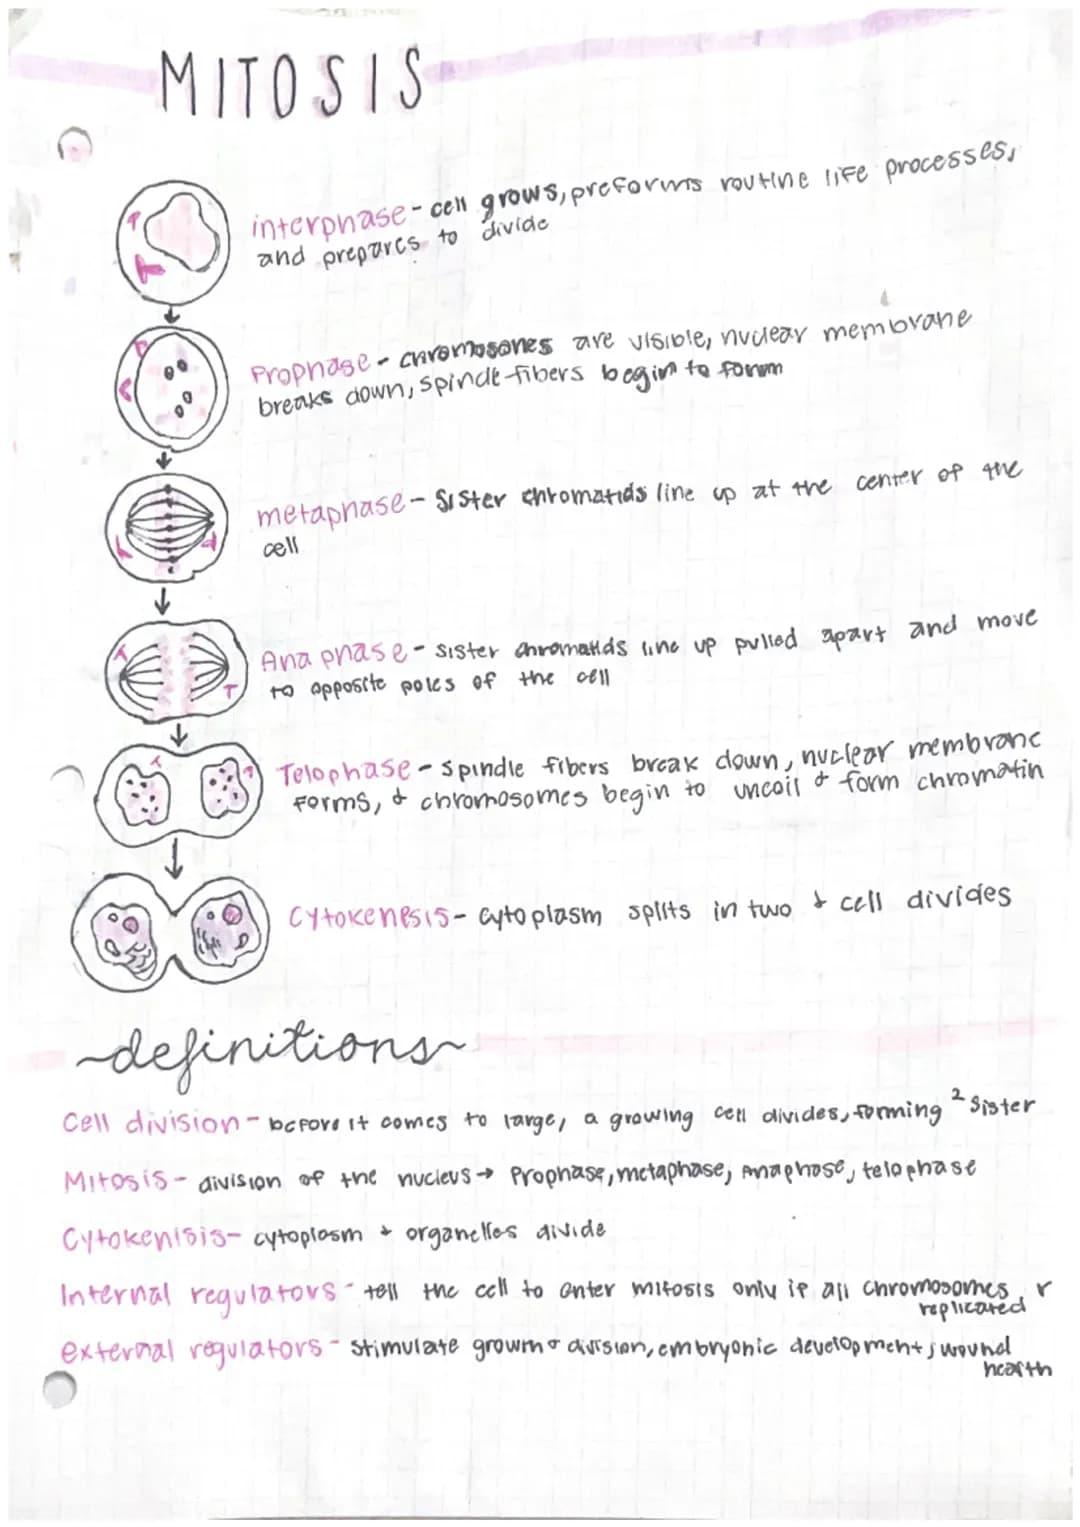 MITOSIS
interphase - cell grows, preforms routine life processes,
and prepares to divide
Prophase - chromosones are visible, nuclear membrane
breaks down, spindle fibers begin to form
metaphase - Sister chromatids line up at the center of the
cell
Anaphase - sister chromatids line up pulled apart and move
to opposite poles of the cell
Telophase - spindle fibers break down, nuclear membrane
forms, & chromosomes begin to uncoil & form chromatin
Cytokenesis - cytoplasm splits in two & cell divides
~definitions~
Cell division - before it comes to large, a growing cell divides, forming 2 sister
Mitosis - division of the nucleus → Prophase, metaphase, Anaphase, telophase
Cytokenisis - cytoplasm + organelles divide
Internal regulators - tell the cell to enter mitosis only if all chromosomes r
replicated
external regulators - stimulate growth & division, embryonic development, wound